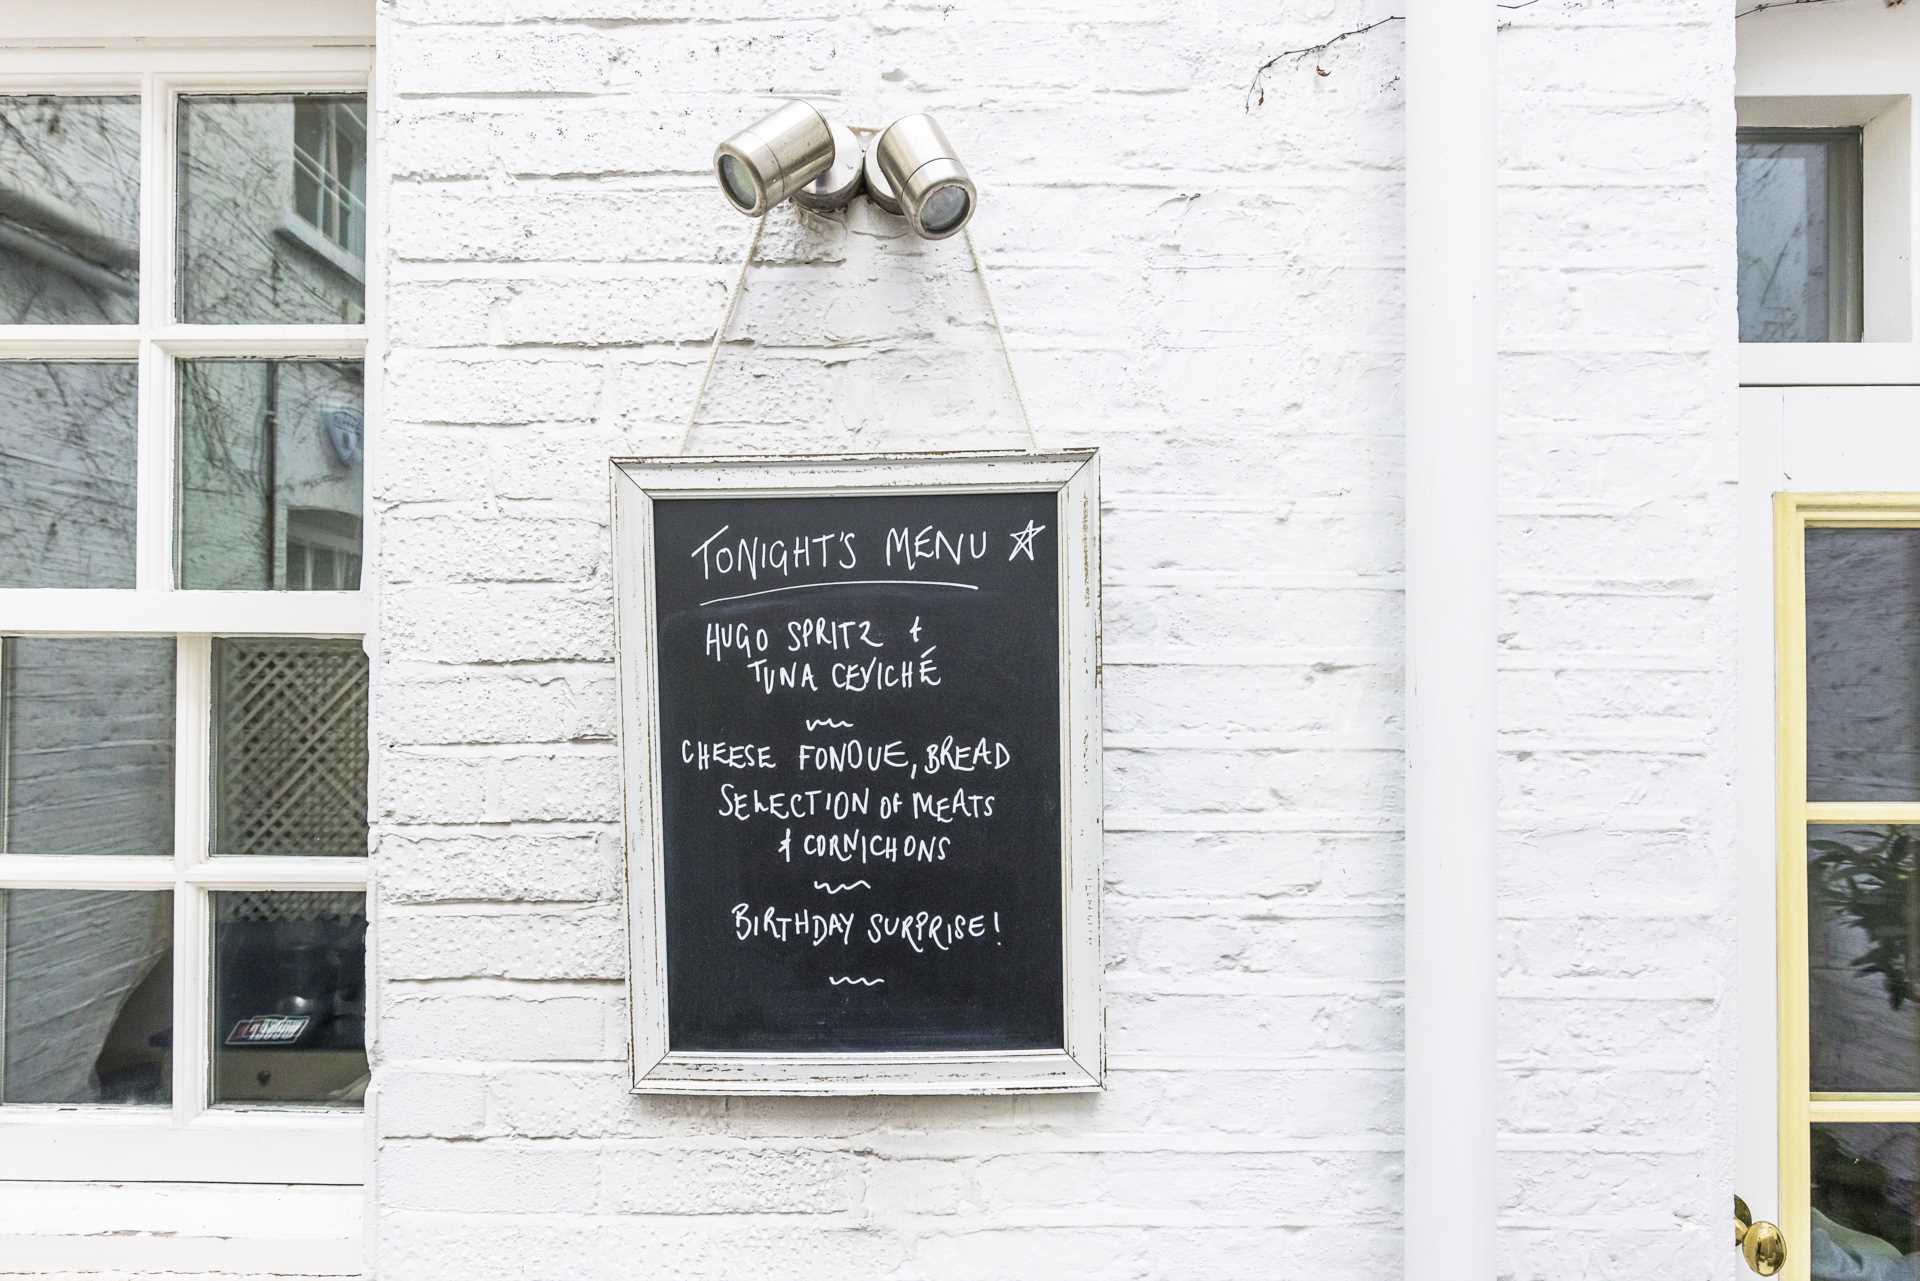 TONIGHT'S MENU
HUGO SPRITZ &
TUNA CEVICHÉ
CHEESE FONDUE, BREAD
SELECTION OF MEATS
& CORNICHONS
BIRTHDAY SURPRISE!